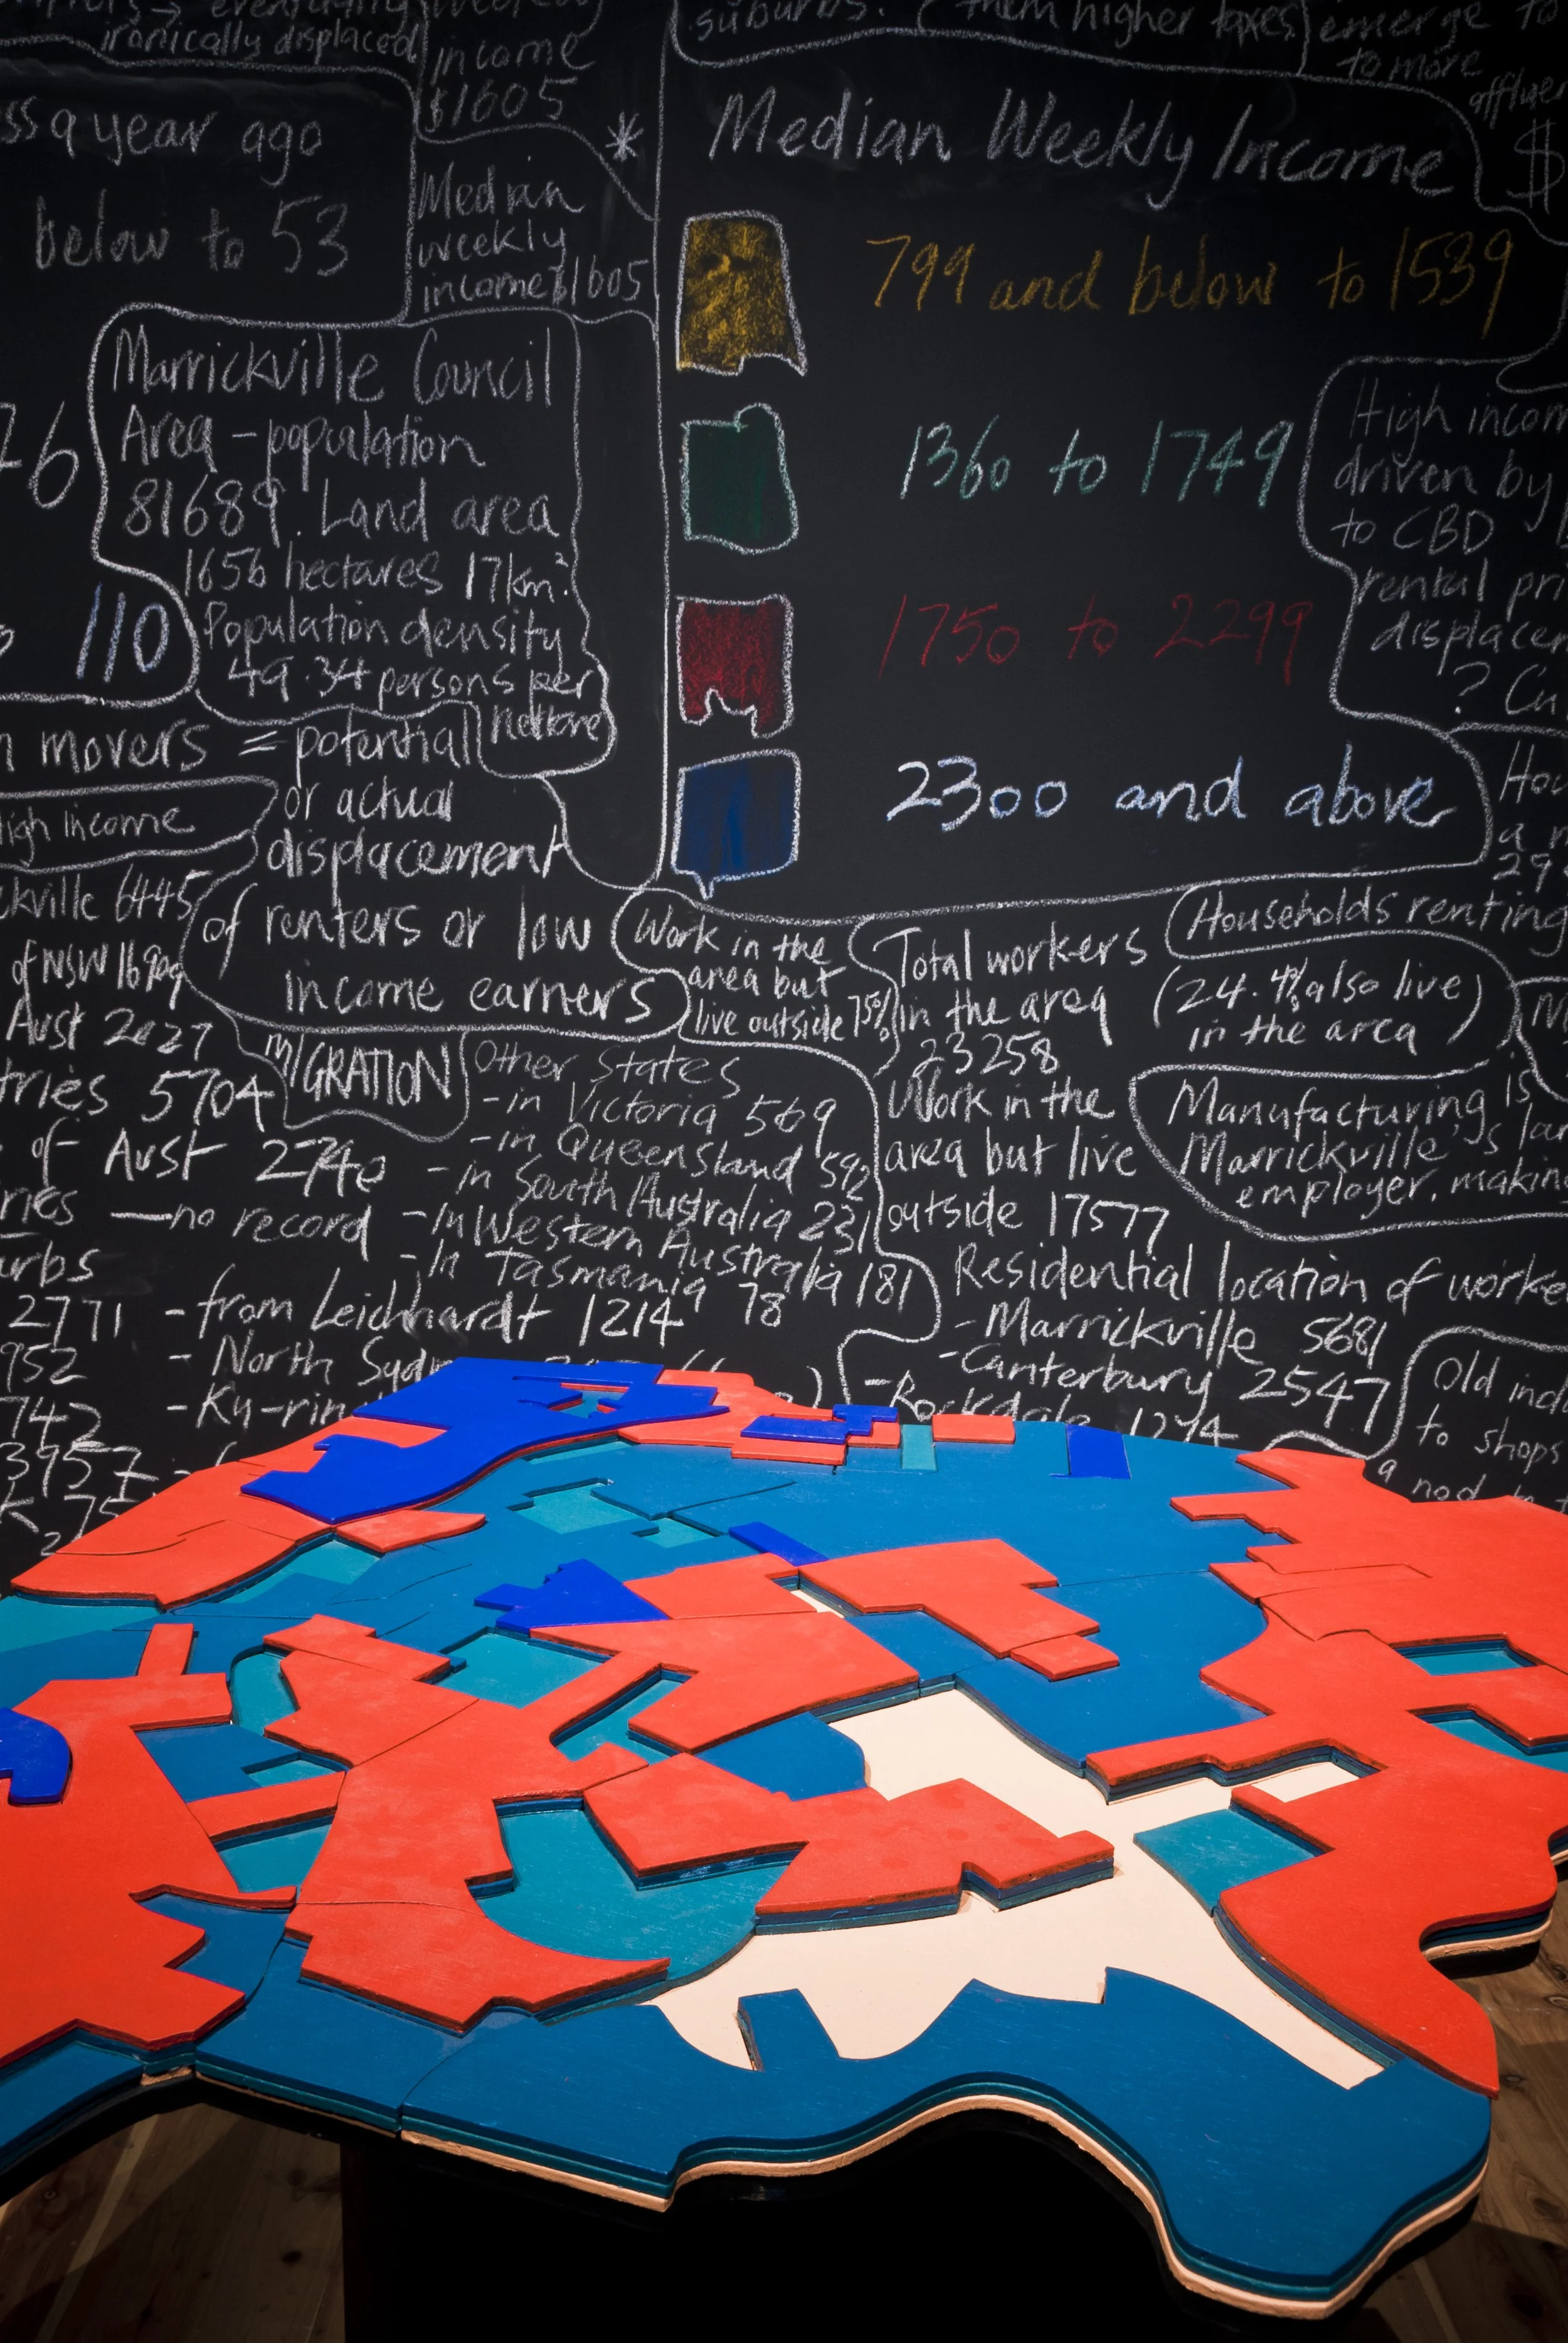 ironically displaced
income
$1605
suburbs.
them higher taxes
emerge to
to more
ss a year ago
below to 53
*
Median
weekly
income $1605
Median Weekly Income
$
799 and below to 1539
1360 to 1749
1750 to 2299
2300 and above
Marrickville Council
Area - population
81689. Land area
1656 hectares 17km²
Population density
49.34 persons per
hectare
76
110
movers = potential
or actual
displacement
of renters or low
income earners
High income
driven by
to CBD
rental
?
high income
ckville 6445
of NSW
Aust 2027
tries 5704
of Aust 2740
ries — no record
urbs
2771 - from Leichhardt 1214
952 - North
742 - Ku-rin
3957
MIGRATION
Other States
- in Victoria 569
- in Queensland 592
- in South Australia 231
- In Western Australia 181
- In Tasmania 78
Work in the
area but
live outside 75%
Total workers
in the area
23258
Work in the
area but live
outside 17577
Households renting
(24.4% also live
in the area)
Manufacturing is
Marrickville's
employer, making
Residential location of worke
- Marrickville 5681
- Canterbury 2547
- Rockdale 1274
Old
to shops
a nod to